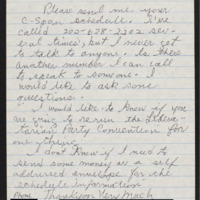 Please send me your
C-Span schedule. I've
called 202-628-2202 sev-
eral times, but I never get
to talk to anyone. Is there
another number I can call
to speak to someone. I
would like to ask some
questions.
I would like to know if you
are going to rerun the Liber-
tarian Party Convention for
one thing.
I don't know if I need to
send some money or a self
addressed envelope for the
schedule information
Thankyou Very Much